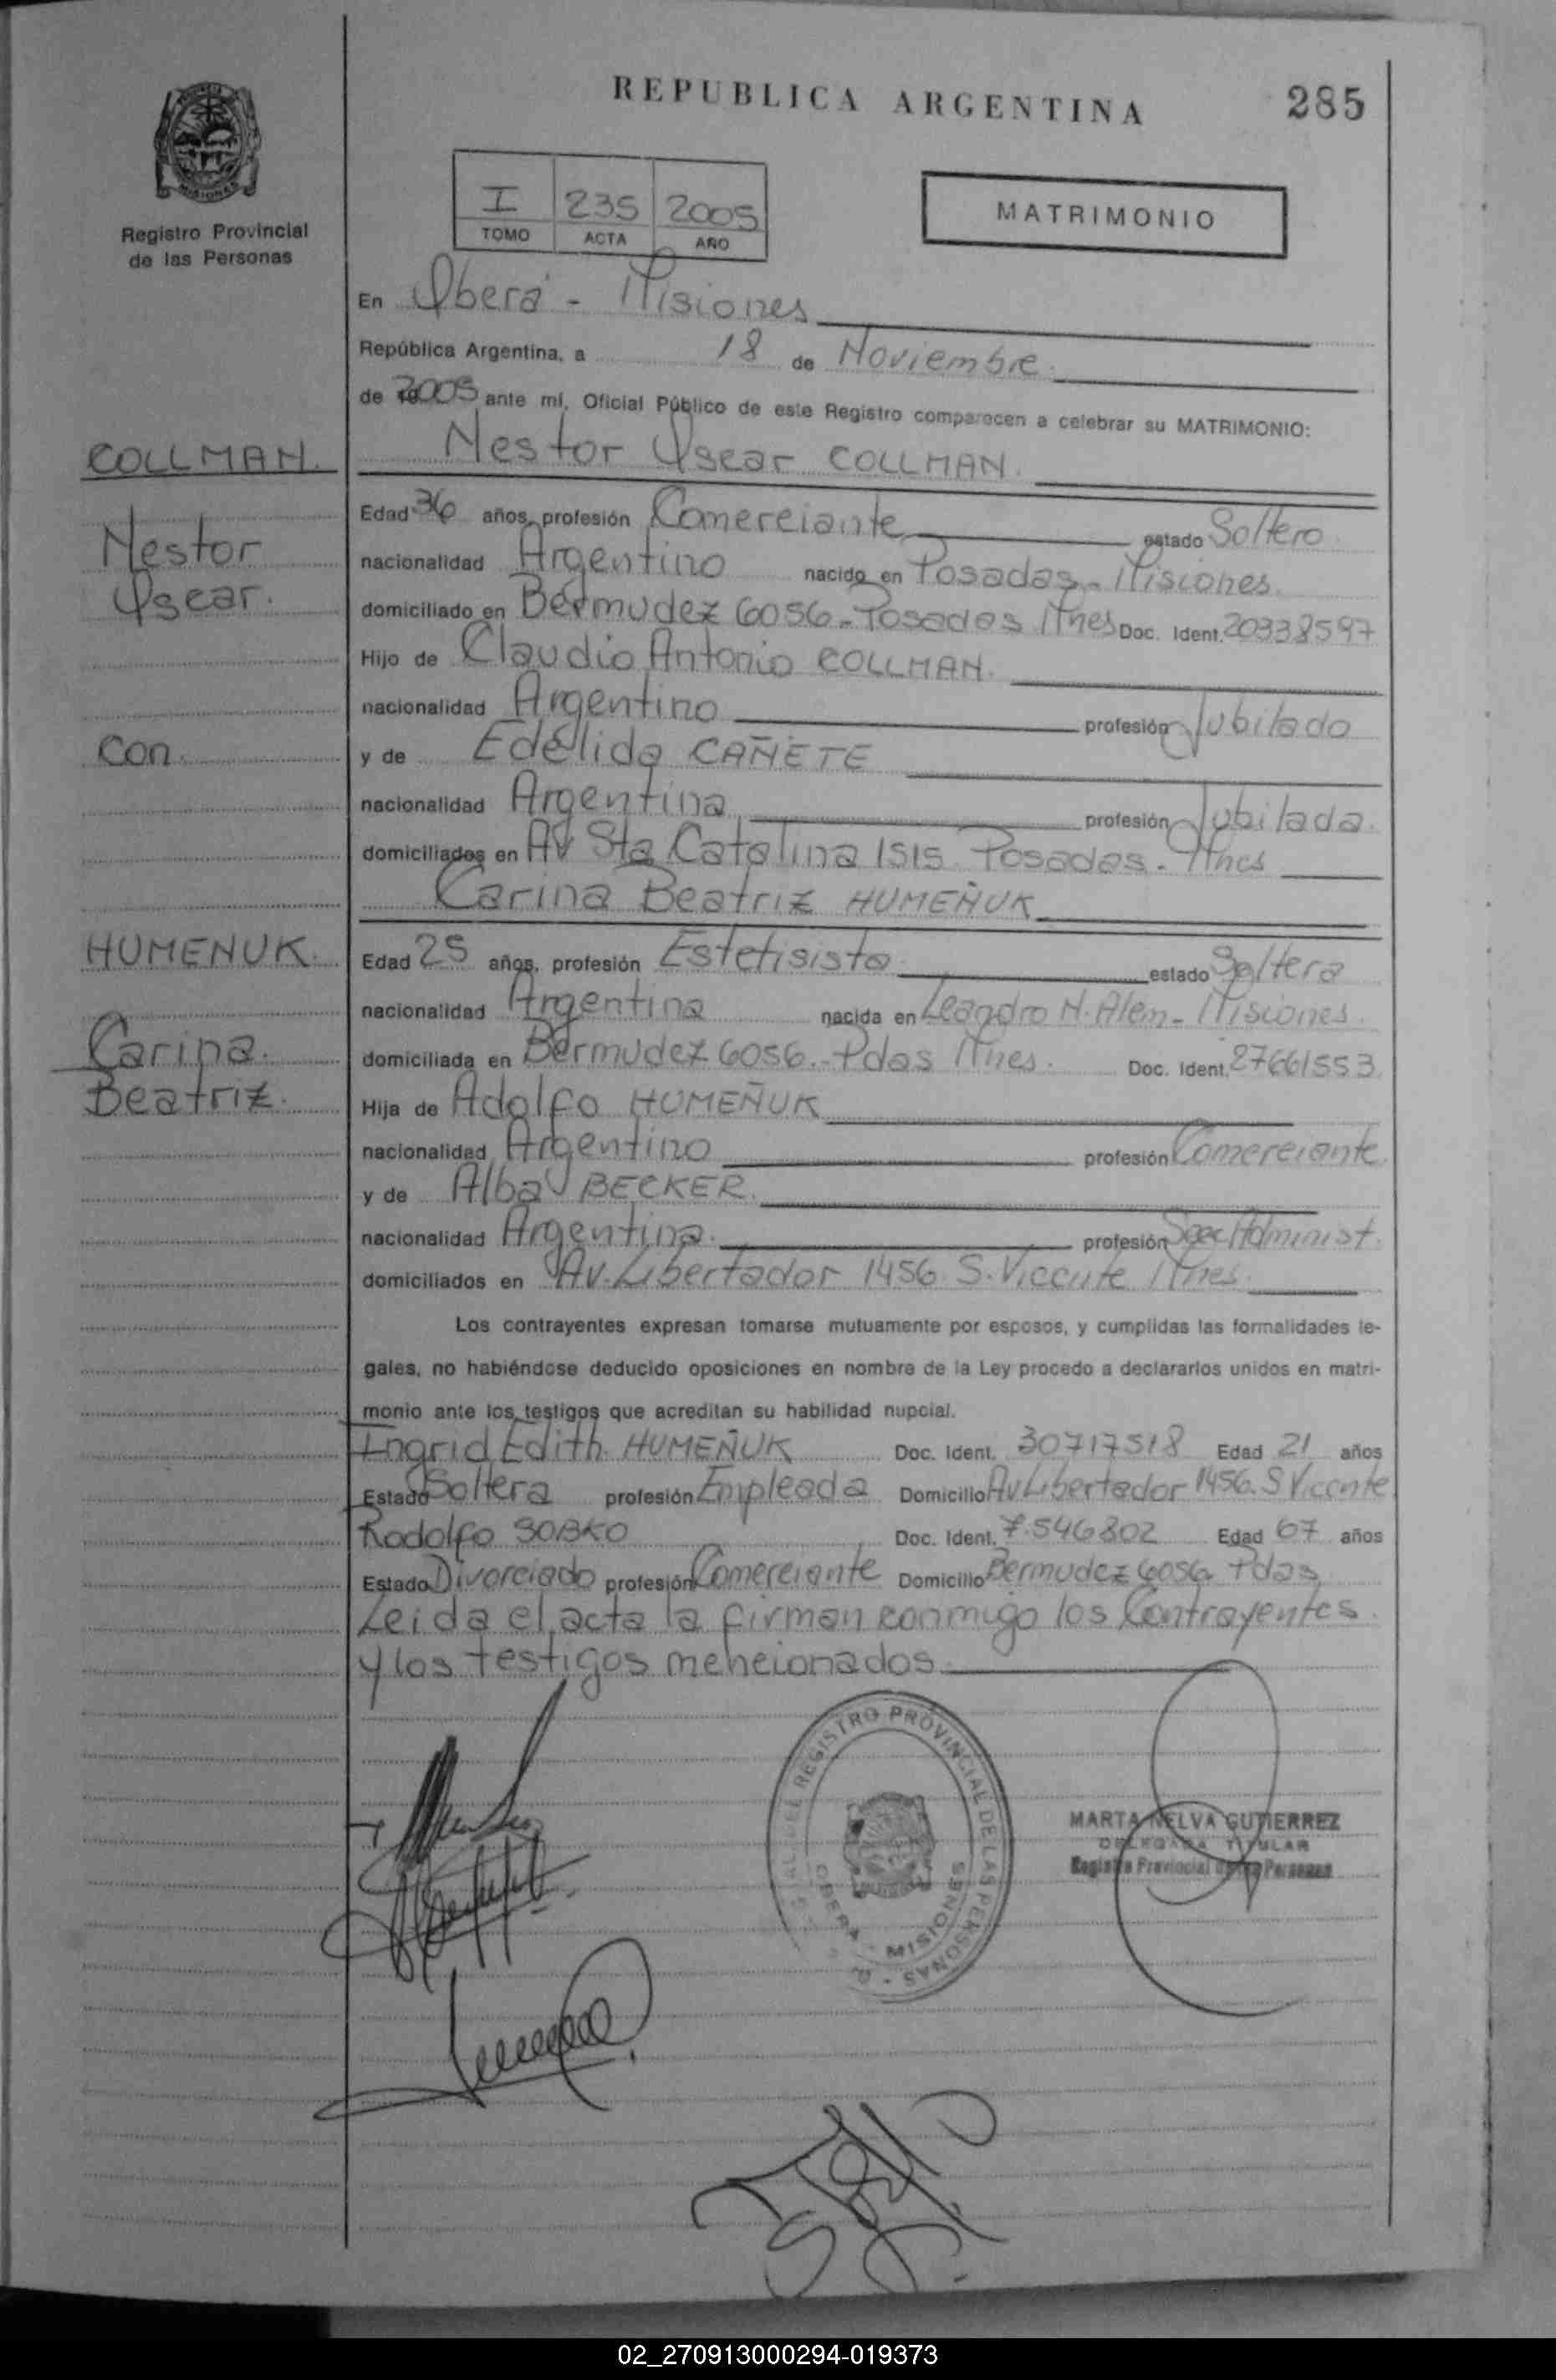 REPUBLICA ARGENTINA
285
MISIONES
Registro Provincial
de las Personas
I 235 2005
TOMO ACTA AÑO
MATRIMONIO
En Oberá - Misiones
República Argentina, a 18 de Noviembre
de 2005 ante mí, Oficial Público de este Registro comparecen a celebrar su MATRIMONIO:
COLLMAN.
Nestor Oscar COLLMAN.
Edad 36 años, profesión Comerciante estado Soltero
Nestor
nacionalidad Argentino nacido en Posadas - Misiones.
Oscar.
domiciliado en Bermudez 6056 - Posadas Mnes Doc. Ident. 20338597
Hijo de Claudio Antonio COLLMAN.
nacionalidad Argentino profesión Jubilado
con
y de Edélida CAÑETE
nacionalidad Argentina profesión Jubilada.
domiciliados en Av Sta Catalina 1515 Posadas - Mnes
Carina Beatriz HUMEÑUK
HUMENUK.
Edad 25 años, profesión Estetisista estado Soltera
nacionalidad Argentina nacida en Leandro N. Alem - Misiones.
Carina.
domiciliada en Bermudez 6056. - Pdas Mnes. Doc. Ident. 27661553
Beatriz.
Hija de Adolfo HUMEÑUK
nacionalidad Argentino profesión Comerciante.
y de Alba BECKER.
nacionalidad Argentina. profesión Administ.
domiciliados en Av. Libertador 1456 S. Vicente Mnes.
Los contrayentes expresan tomarse mutuamente por esposos, y cumplidas las formalidades le-
gales, no habiéndose deducido oposiciones en nombre de la Ley procedo a declararlos unidos en matri-
monio ante los testigos que acreditan su habilidad nupcial.
Ingrid Edith HUMEÑUK Doc. Ident. 30717518 Edad 21 años
Estado Soltera profesión Empleada Domicilio Av Libertador 1456. S Vicente
Rodolfo SOBKO Doc. Ident. 7.546802 Edad 67 años
Estado Divorciado profesión Comerciante Domicilio Bermudez 6056 Pdas
Leida el acta la firman conmigo los Contrayentes
y los testigos meneionados
REGISTRO PROVINCIAL DE LAS PERSONAS
OBERA - MISIONES
MARTA NELVA GUTIERREZ
DELEGADA TITULAR
Registro Provincial de las Personas
02_270913000294-019373